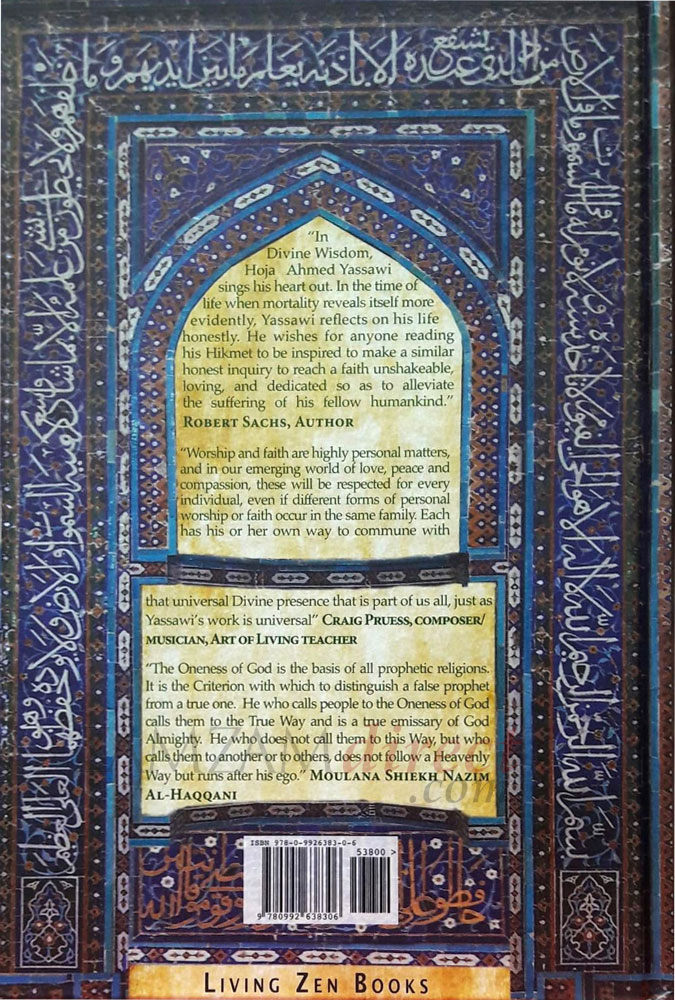 بسم الله الرحمن الرحيم الله لا اله الا هو الحي القيوم لا تاخذه سنة ولا نوم له ما في السموات وما في الارض
من ذا الذي يشفع عنده الا باذنه يعلم ما بين ايديهم وما
خلفهم ولا يحيطون بشيء من علمه الا بما شاء وسع كرسيه السموات والارض ولا يوده حفظهما وهو العلي العظيم
“In
Divine Wisdom,
Hoja Ahmed Yassawi
sings his heart out. In the time of
life when mortality reveals itself more
evidently, Yassawi reflects on his life
honestly. He wishes for anyone reading
his Hikmet to be inspired to make a similar
honest inquiry to reach a faith unshakeable,
loving, and dedicated so as to alleviate
the suffering of his fellow humankind.”
ROBERT SACHS, AUTHOR
“Worship and faith are highly personal matters,
and in our emerging world of love, peace and
compassion, these will be respected for every
individual, even if different forms of personal
worship or faith occur in the same family. Each
has his or her own way to commune with
that universal Divine presence that is part of us all, just as
Yassawi’s work is universal” CRAIG PRUESS, COMPOSER/
MUSICIAN, ART OF LIVING TEACHER
“The Oneness of God is the basis of all prophetic religions.
It is the Criterion with which to distinguish a false prophet
from a true one. He who calls people to the Oneness of God
calls them to the True Way and is a true emissary of God
Almighty. He who does not call them to this Way, but who
calls them to another or to others, does not follow a Heavenly
Way but runs after his ego.” MOULANA SHIEKH NAZIM
AL-HAQQANI
.com
ISBN 978-0-9926383-0-6
53800 >
9 780992 638306
حافظوا على
وقوموا لله
LIVING ZEN BOOKS